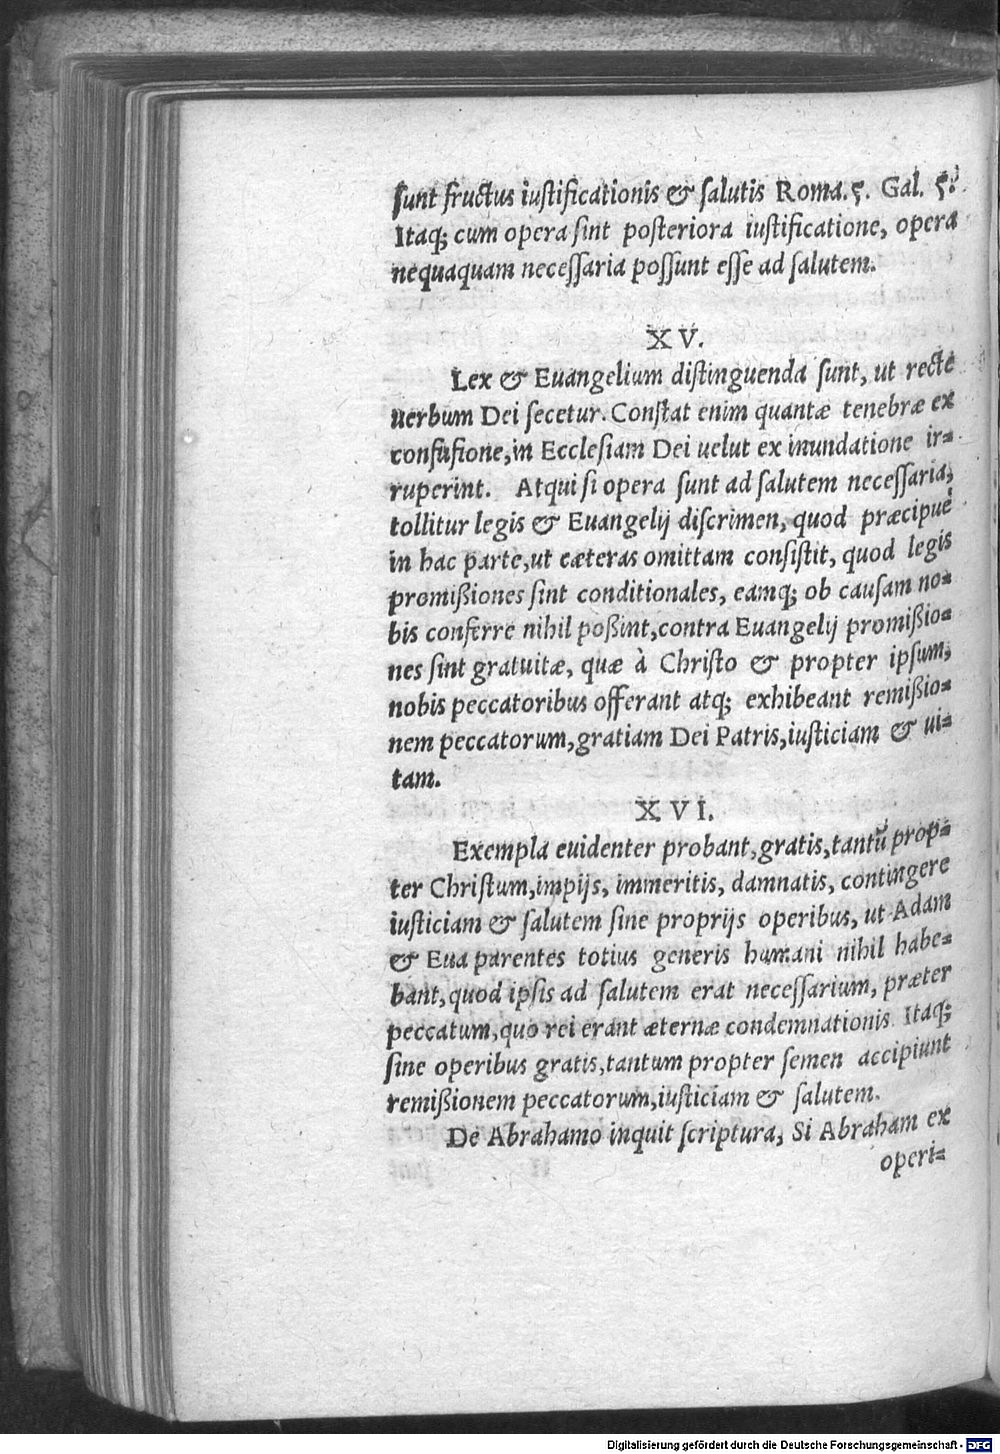 sunt fructus iustificationis & salutis Roma. 5. Gal. 5.
Itaq; cum opera sint posteriora iustificatione, opera
nequaquam necessaria possunt esse ad salutem.
XV.
Lex & Euangelium distinguenda sunt, ut recte
uerbum Dei secetur. Constat enim quantæ tenebræ ex
confusione, in Ecclesiam Dei uelut ex inundatione ir=
ruperint. Atqui si opera sunt ad salutem necessaria,
tollitur legis & Euangelij discrimen, quod præcipuè
in hac parte, ut cæteras omittam consistit, quod legis
promißiones sint conditionales, eamq; ob causam no=
bis conferre nihil poßint, contra Euangelij promißio=
nes sint gratuitæ, quæ à Christo & propter ipsum,
nobis peccatoribus offerant atq; exhibeant remißio=
nem peccatorum, gratiam Dei Patris, iusticiam & ui=
tam.
XVI.
Exempla euidenter probant, gratis, tantũ prop=
ter Christum, impijs, immeritis, damnatis, contingere
iusticiam & salutem sine proprijs operibus, ut Adam
& Eua parentes totius generis humani nihil habe=
bant, quod ipsis ad salutem erat necessarium, præter
peccatum, quo rei erant æternæ condemnationis. Itaq;
sine operibus gratis, tantum propter semen accipiunt
remißionem peccatorum, iusticiam & salutem.
De Abrahamo inquit scriptura, Si Abraham ex
operi=
Digitalisierung gefördert durch die Deutsche Forschungsgemeinschaft - DFG